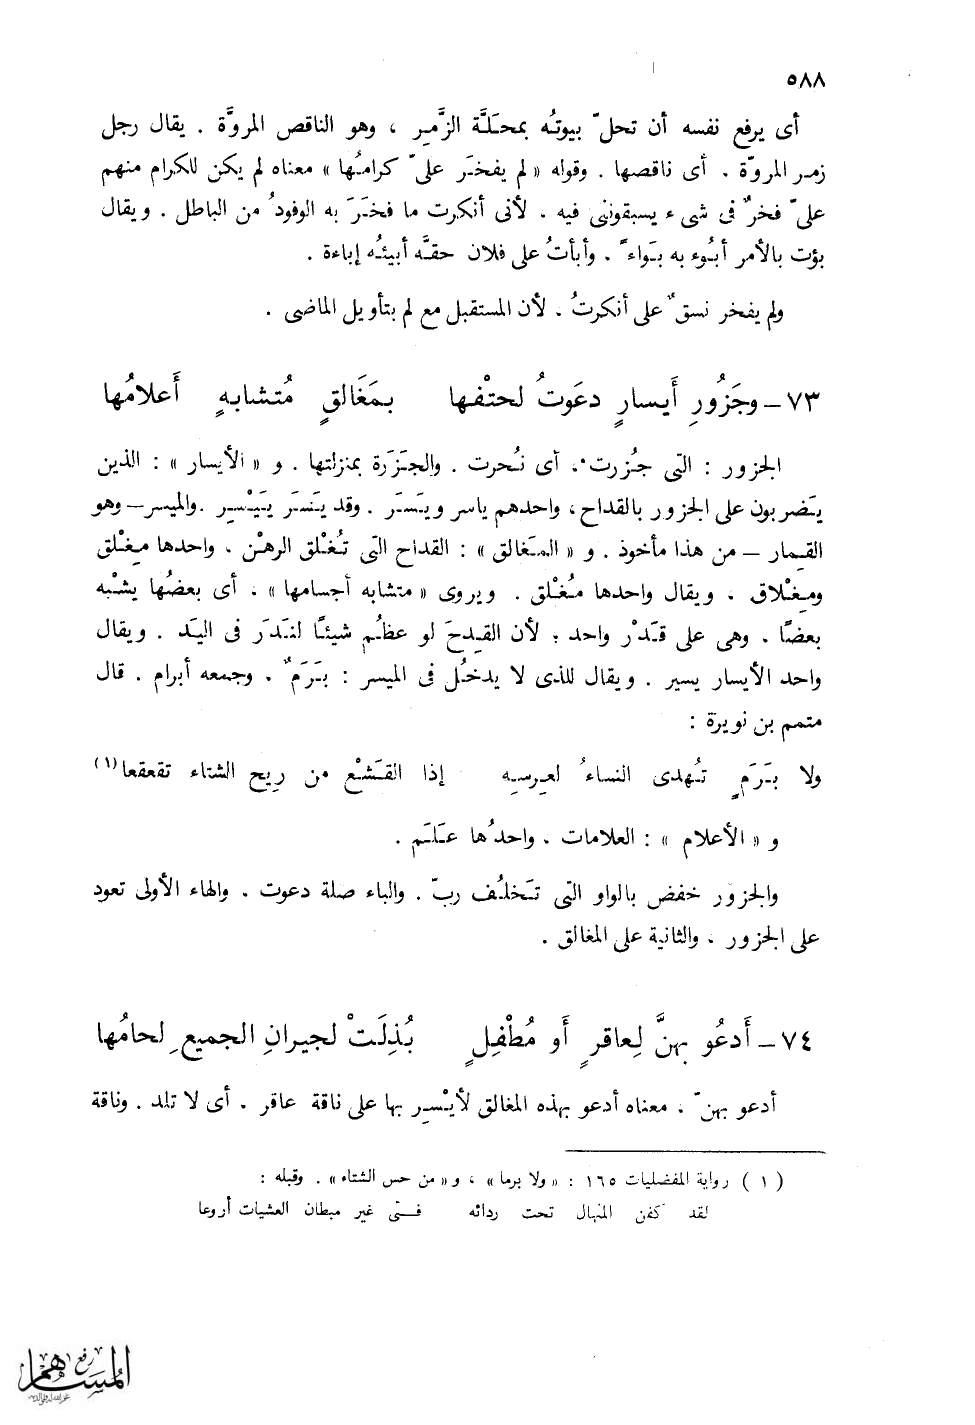 ٥٨٨
أى يرفع نفسه أن تحلّ بيوتُه بمحَلَّة الزَّمِر ، وهو الناقص المروَّة . يقال رجل
زمر المروّة . أى ناقصها . وقوله « لم يفخَر علىّ كرامُها » معناه لم يكن للكرام منهم
علىّ فخرٌ فى شىء يسبقوننى فيه . لأنى أنكرت ما فخَرَ به الوفودُ من الباطل . ويقال
بؤت بالأمر أبُوء به بَواءً . وأبأتُ على فلان حقَّه أبيئُه إباءة .
ولم يفخر نسقٌ على أنكرتُ . لأن المستقبل مع لم بتأويل الماضى .
٧٣ – وجَزُورِ أَيسارٍ دعَوتُ لحتْفها بمَغَالقٍ مُتشابهٍ أَعلامُها
الجزور : التى جُزرت ، أى نُحرت . والجَزَرة بمنزلتها . و « الأيسار » : الذين
يَضربون على الجزور بالقداح ، واحدهم ياسر ويَسَر . وقد يَسَر يَيْسِر . والميسر – وهو
القِمار – من هذا مأخوذ . و « المَغالق » : القداح التى تُغْلق الرهْن . واحدها مِغْلق
ومِغْلاق . ويقال واحدها مُغْلق . ويروى « متشابه أجسامها » ، أى بعضُها يشْبه
بعضًا . وهى على قَدْر واحد ؛ لأن القِدحَ لو عظُم شيئًا لنَدَر فى اليَد . ويقال
واحد الأيسار يسير . ويقال للذى لا يدخُل فى الميسر : بَرَمٌ . وجمعه أبرام . قال
متمم بن نويرة :
ولا بَرَمٍ تُهدى النساءُ لعِرسِه إذا القَشْع من رِيح الشتاء تقعقعا(١)
و « الأعلام » : العلامات ، واحدُها عَلَم .
والجزور خفض بالواو التى تَخلُف ربّ . والباء صلة دعوت . والهاء الأولى تعود
على الجزور ، والثانية على المغالق .
٧٤ – أَدعُو بهنَّ لِعاقرٍ أَو مُطْفِلٍ بُذِلَتْ لجيرانِ الجميعِ لحامُها
أدعو بهنّ ، معناه أدعو بهذه المغالق لأيْسِر بها على ناقة عاقر . أى لا تلد . وناقة
( ١ ) رواية المفضليات ١٦٥ : « ولا برما » ، و « من حس الشتاء » . وقبله :
لقد كفن المنهال تحت ردائه فتى غير مبطان العشيات أروعا
رفع
المساهم